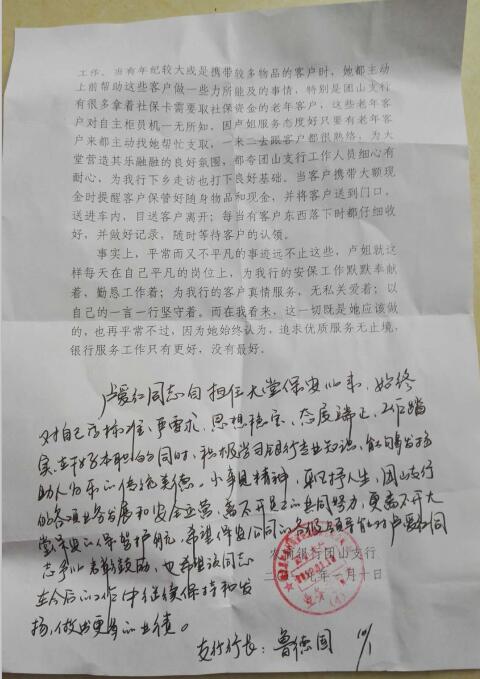 工作。当有年纪较大或是携带较多物品的客户时，她都主动
上前帮助这些客户做一些力所能及的事情，特别是团山支行
有很多拿着社保卡需要取社保资金的老年客户，这些老年客
户对自主柜员机一无所知，因卢姐服务态度好只要有老年客
户来都主动找她帮忙支取，一来二去跟客户都很熟络，为大
堂营造其乐融融的良好氛围，都夸团山支行工作人员细心有
耐心，为我行下乡走访也打下良好基础。当客户携带大额现
金时提醒客户保管好随身物品和现金，并将客户送到门口，
送进车内，目送客户离开；每当有客户东西落下时都仔细收
好，并做好记录，随时等待客户的认领。
事实上，平常而又不平凡的事迹远不止这些，卢姐就这
样每天在自己平凡的岗位上，为我行的安保工作默默奉献
着，勤恳工作着；为我行的客户真情服务，无私关爱着；以
自己的一言一行坚守着。而在我看来，这一切既是她应该做
的，也再平常不过，因为她始终认为，追求优质服务无止境，
银行服务工作只有更好，没有最好。
卢爱红同志自担任大堂保安以来，始终
对自己高标准、严要求，思想稳定、态度端正、工作踏
实，在干好本职的同时，积极学习银行专业知识，能够发扬
助人为乐的传统美德。小事见精神，
的各项业务发展和安全运营，离不开员工的共同努力，更离不开大
堂保安的保驾护航，希望保安公司的各级领导能对卢爱红同
志予以表彰鼓励，也希望该同志
在今后的工作中继续保持和发
扬，做出更多的业绩。
农商银行团山支行
年一月十日
支行行长：鲁德国 10/1